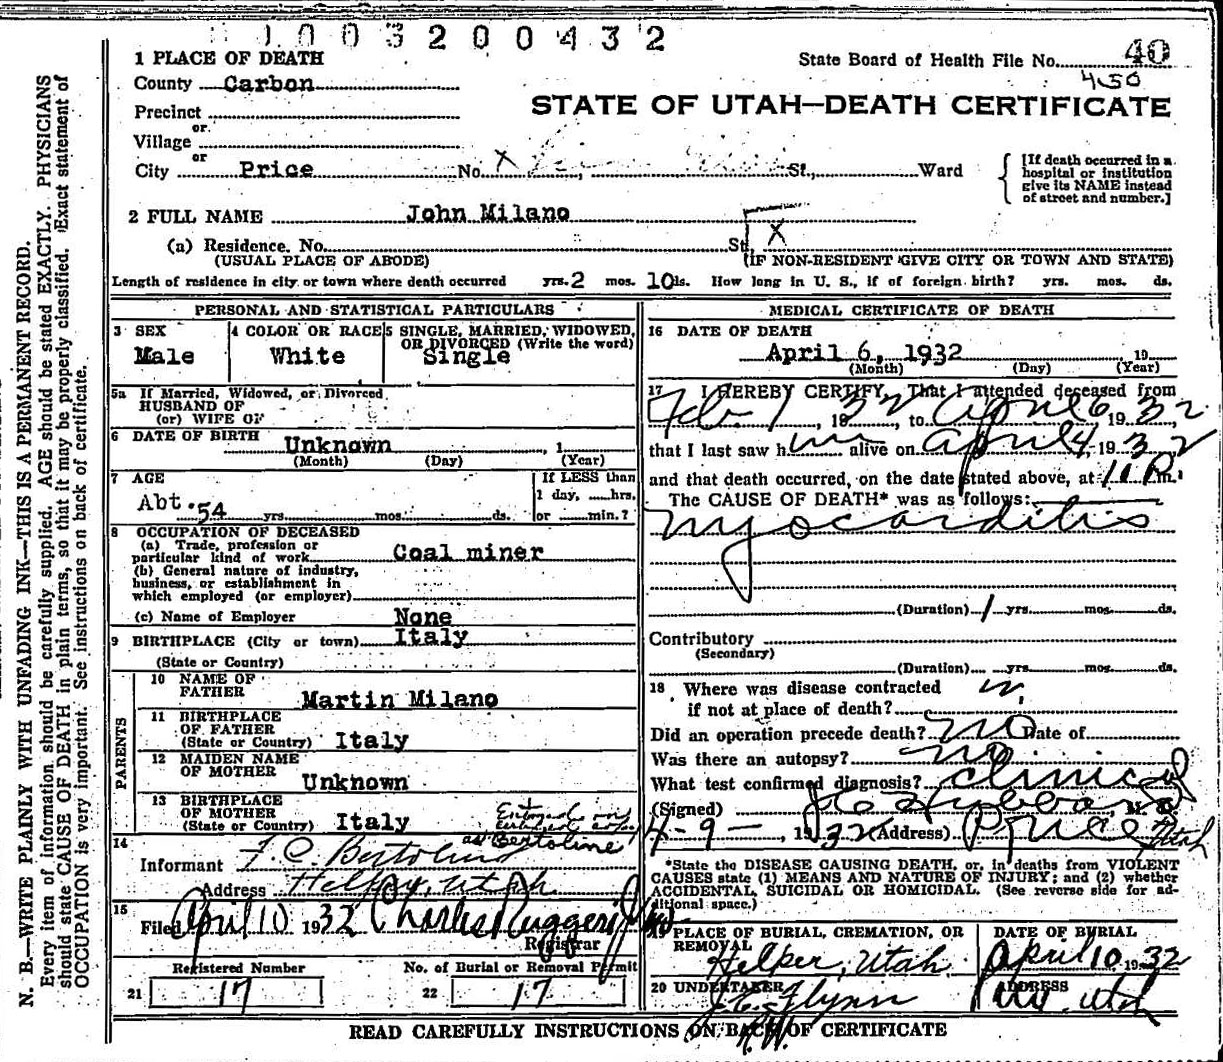 1 0 0 3 2 0 0 4 3 2
1 PLACE OF DEATH
State Board of Health File No. 40
450
County Carbon
STATE OF UTAH—DEATH CERTIFICATE
Precinct
or
Village
or
City Price No. X St., Ward
[If death occurred in a hospital or institution give its NAME instead of street and number.]
2 FULL NAME John Milano
(a) Residence. No. St. X
(USUAL PLACE OF ABODE) (IF NON-RESIDENT GIVE CITY OR TOWN AND STATE)
Length of residence in city or town where death occurred yrs. 2 mos. 10 ds. How long in U. S., if of foreign birth? yrs. mos. ds.
PERSONAL AND STATISTICAL PARTICULARS
3 SEX
Male
4 COLOR OR RACE
White
5 SINGLE, MARRIED, WIDOWED,
OR DIVORCED (Write the word)
Single
5a If Married, Widowed, or Divorced
HUSBAND OF
(or) WIFE OF
6 DATE OF BIRTH Unknown , 1
(Month) (Day) (Year)
7 AGE
Abt. 54 yrs. mos. ds.
If LESS than
1 day, hrs.
or min.?
8 OCCUPATION OF DECEASED
(a) Trade, profession or
particular kind of work Coal miner
(b) General nature of industry,
business, or establishment in
which employed (or employer)
(c) Name of Employer None
9 BIRTHPLACE (City or town) Italy
(State or Country)
PARENTS
10 NAME OF
FATHER Martin Milano
11 BIRTHPLACE
OF FATHER
(State or Country) Italy
12 MAIDEN NAME
OF MOTHER Unknown
13 BIRTHPLACE
OF MOTHER
(State or Country) Italy
as "Bertoline"
14
Informant F. C. Bertolino
Address Helper, Utah
15
Filed April 10 1932 Charles Ruggeri
Registrar
Registered Number
21 17
No. of Burial or Removal Permit
22 17
MEDICAL CERTIFICATE OF DEATH
16 DATE OF DEATH
April 6, 1932 19
(Month) (Day) (Year)
17 I HEREBY CERTIFY, That I attended deceased from
Feb. 1 1932, to April 6 1932
that I last saw him alive on April 4, 1932
and that death occurred, on the date stated above, at 11 P.m.
The CAUSE OF DEATH* was as follows:
Myocarditis
(Duration) 1 yrs. mos. ds.
Contributory
(Secondary)
(Duration) yrs. mos. ds.
18 Where was disease contracted
if not at place of death?
Did an operation precede death? no Date of
Was there an autopsy? no
What test confirmed diagnosis? Clinical
(Signed) Hubbard, M. D.
4-9-, 1932 (Address) Price, Utah
*State the DISEASE CAUSING DEATH, or, in deaths from VIOLENT
CAUSES state (1) MEANS AND NATURE OF INJURY; and (2) whether
ACCIDENTAL, SUICIDAL OR HOMICIDAL. (See reverse side for ad-
ditional space.)
19 PLACE OF BURIAL, CREMATION, OR
REMOVAL
Helper, Utah
DATE OF BURIAL
April 10 1932
20 UNDERTAKER
J. E. Flynn
ADDRESS
Utah
READ CAREFULLY INSTRUCTIONS ON BACK OF CERTIFICATE
N. B.—WRITE PLAINLY WITH UNFADING INK—THIS IS A PERMANENT RECORD.
Every item of information should be carefully supplied. AGE should be stated EXACTLY. PHYSICIANS
should state CAUSE OF DEATH in plain terms, so that it may be properly classified. Exact statement of
OCCUPATION is very important. See instructions on back of certificate.